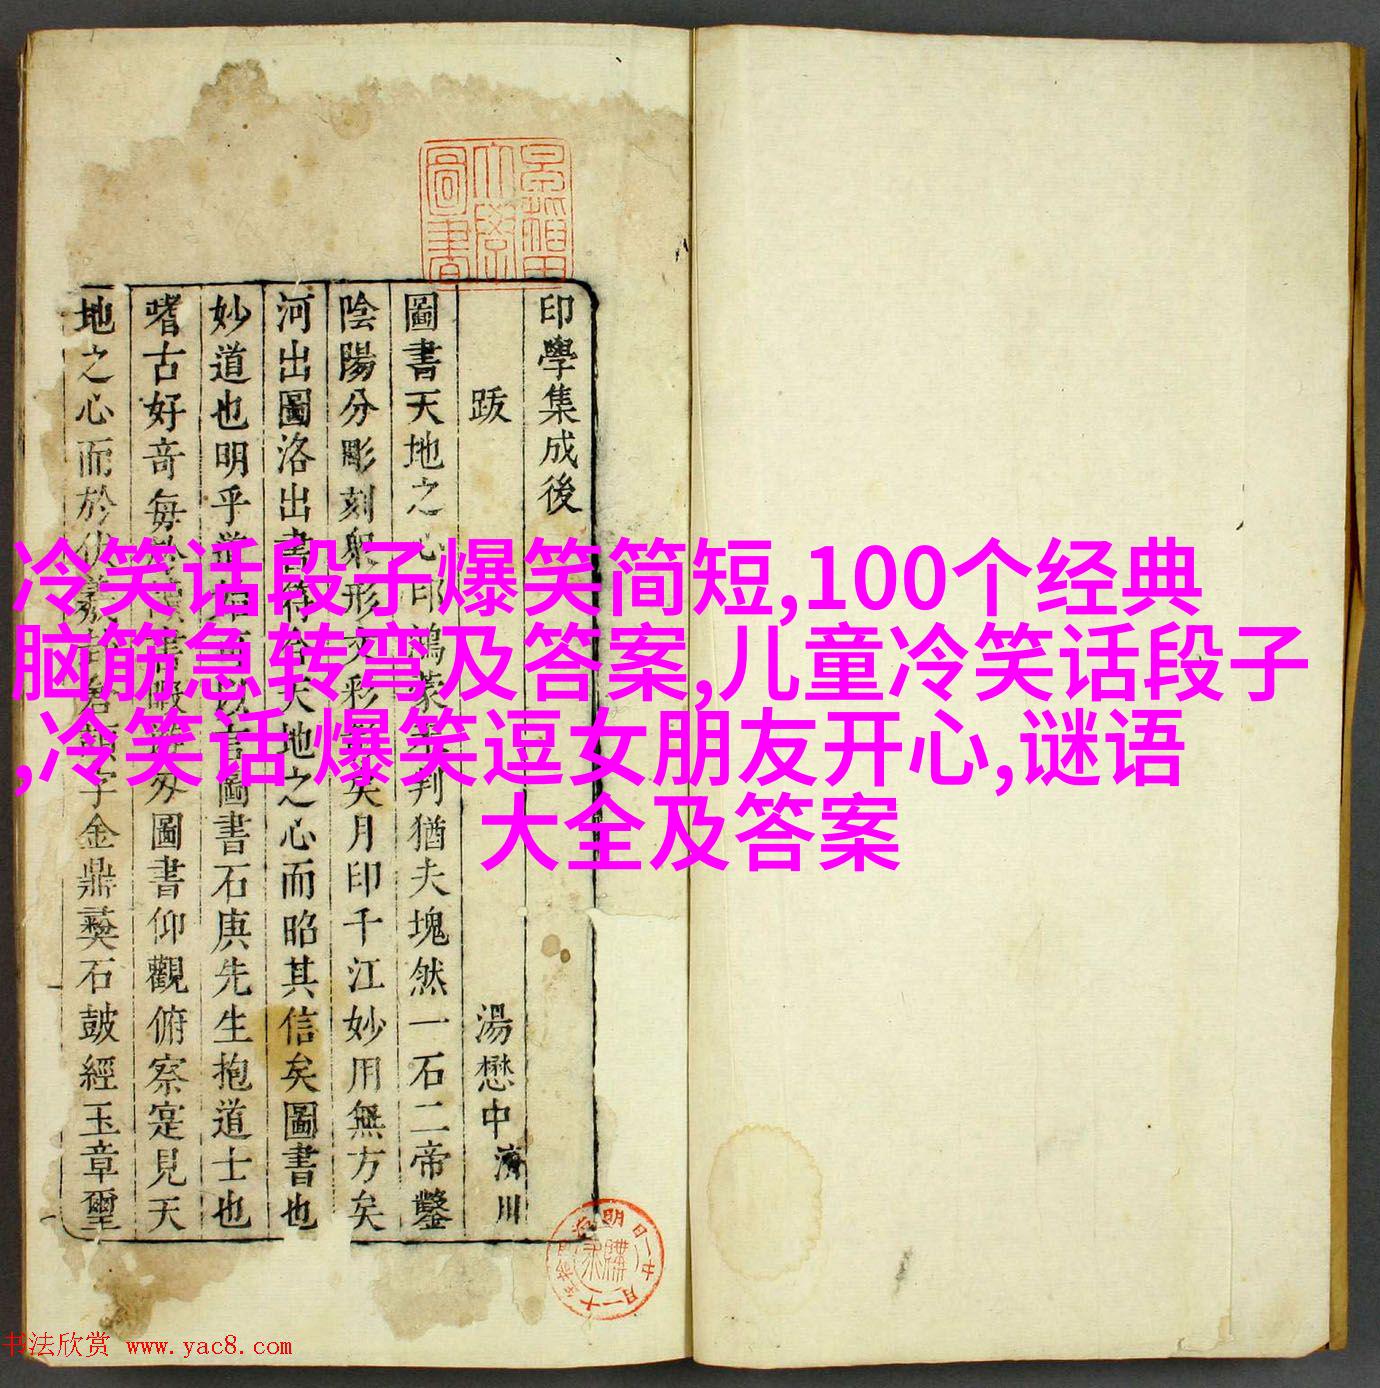 冷笑话段子爆笑简短,100个经典
脑筋急转弯及答案,儿童冷笑话段子
,冷笑话 爆笑逗女朋友开心,谜语
大全及答案
印學集成後
跋 湯懋中 濟川
圖書天地之心印鴻蒙判猶夫塊然一石二帝鑿
陰陽分彫刻躬形文彩矣月印千江妙用無方矣
河出圖洛出書符合天地之心而昭其信矣圖書也
妙道也明乎道以言圖書石庚先生抱道士也
嗜古好竒每暇分圖書仰觀俯察寔見天
地之心而於伏羲蒼頡字金鼎彞石鼓經玉章璽
書法欣赏 www.yac8.com